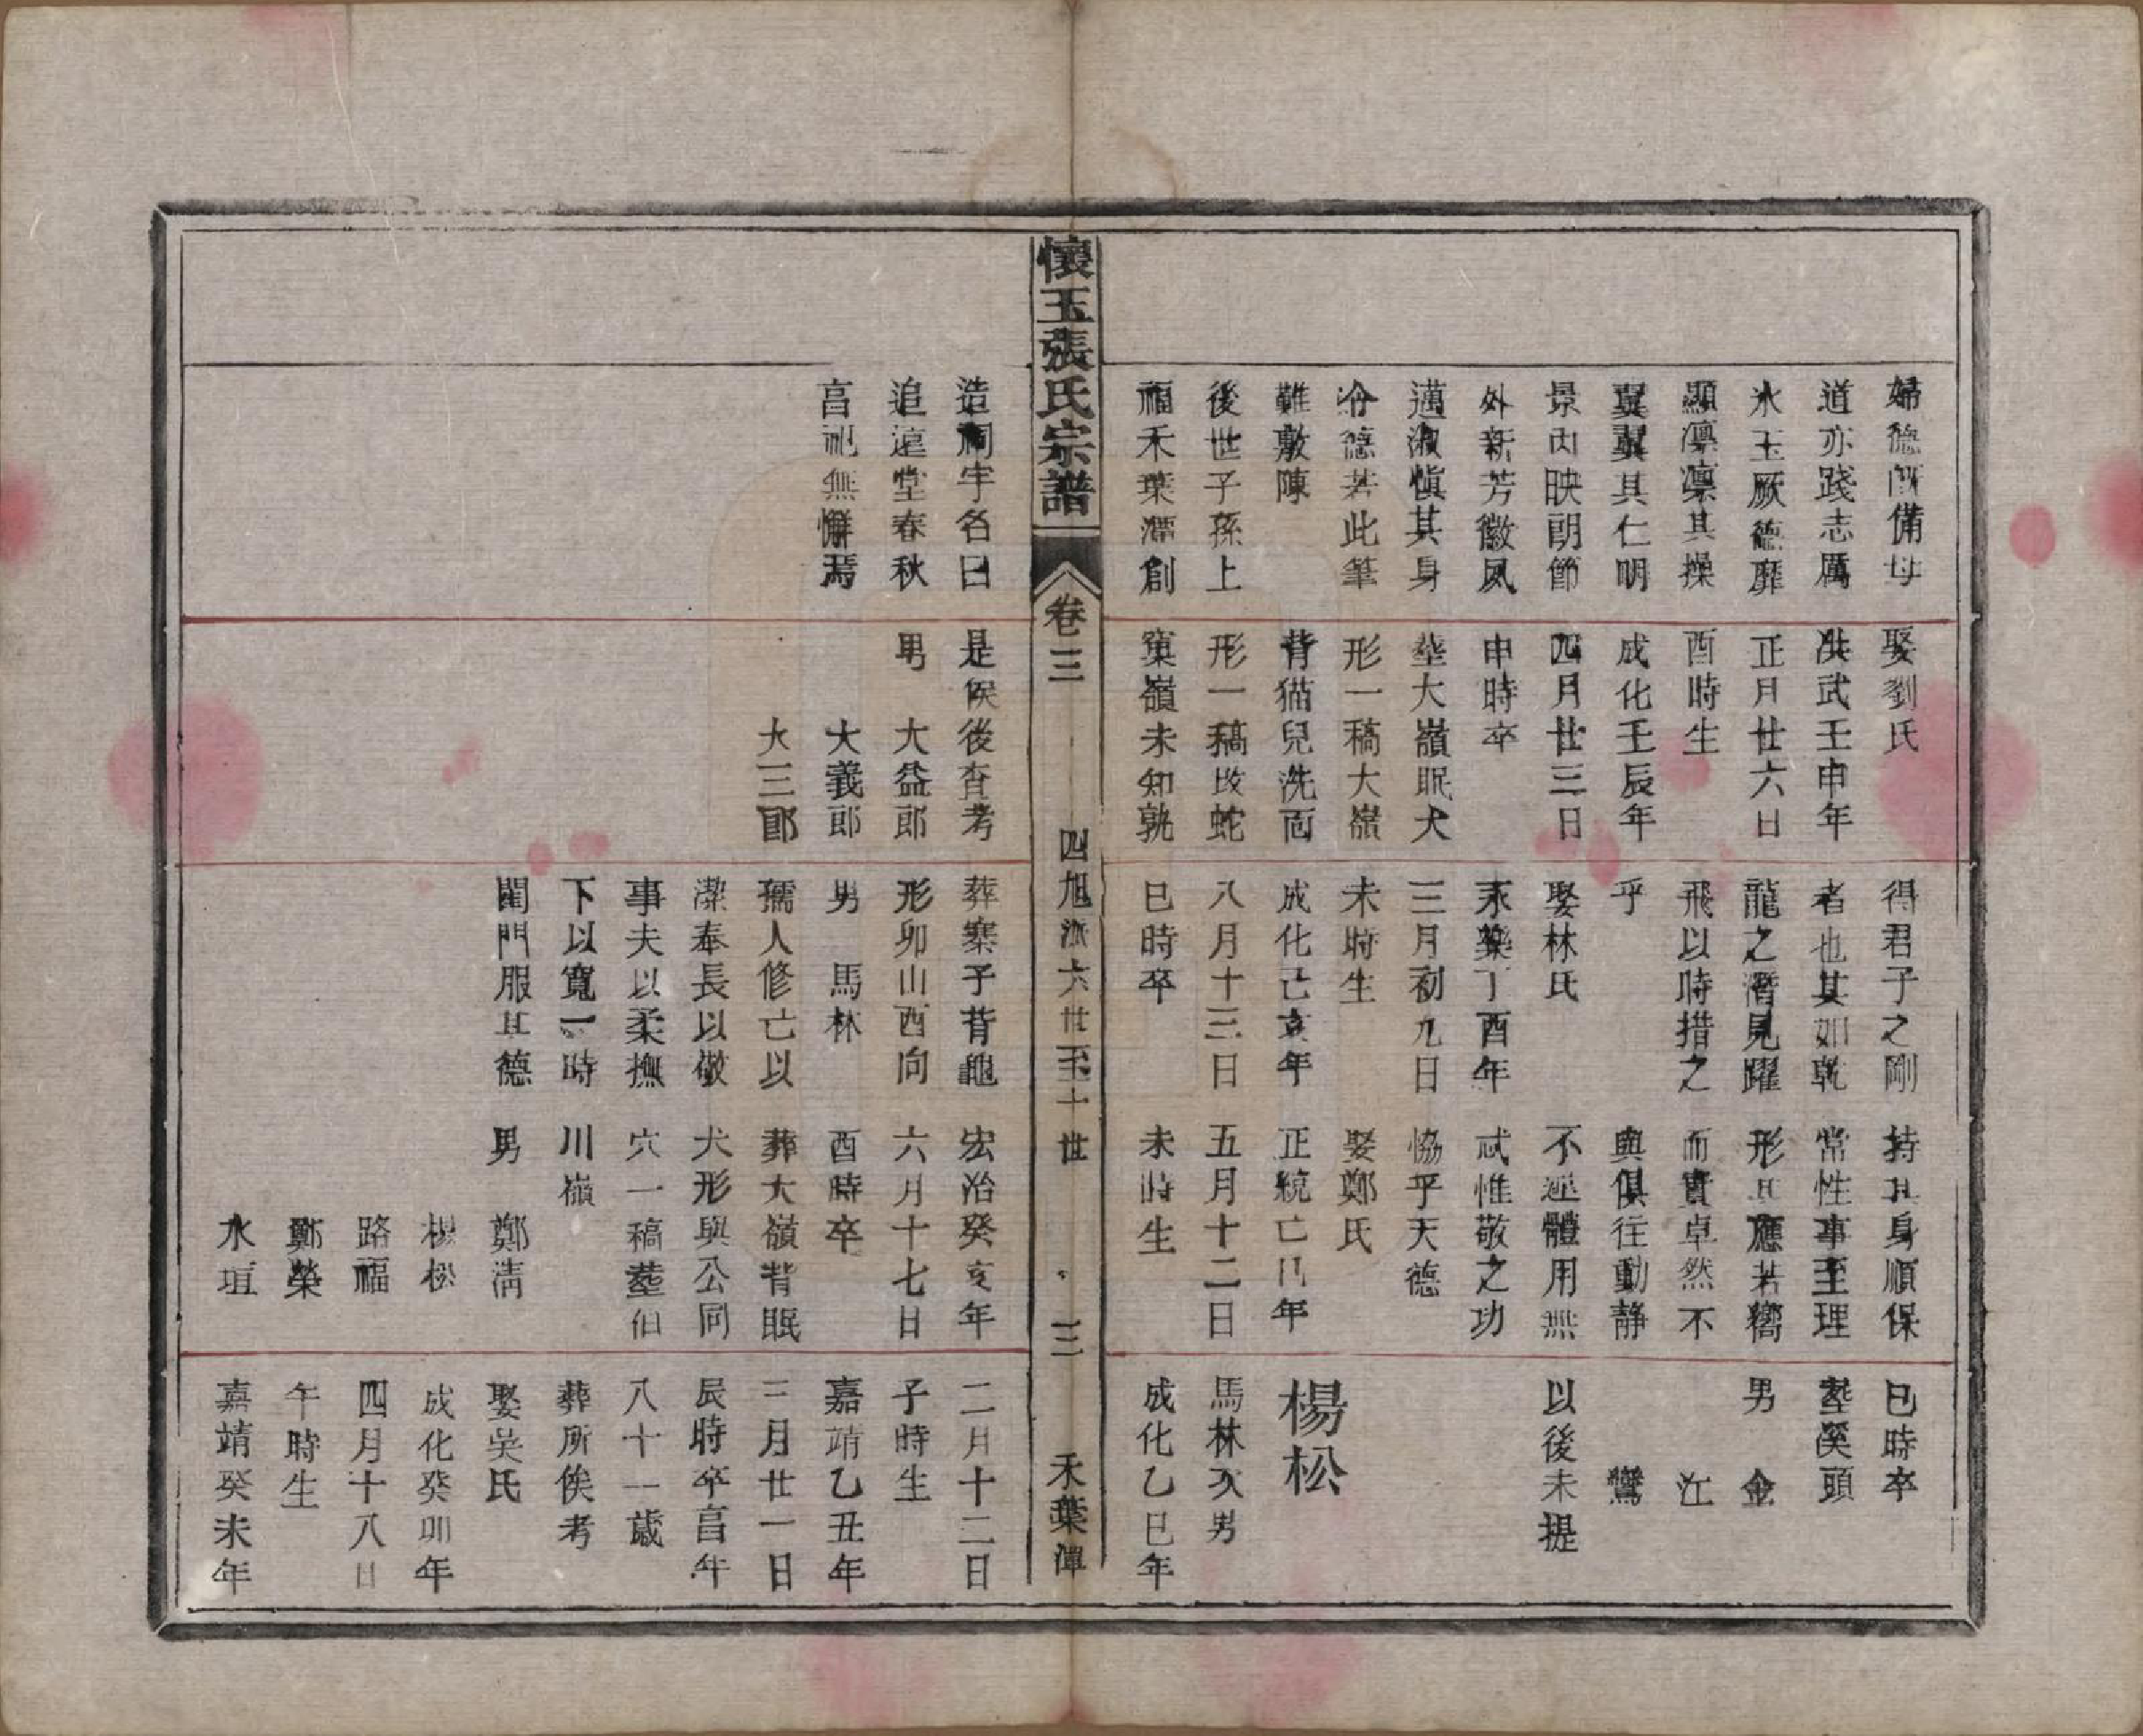 婦德所備母
道亦踐志厲
冰玉厥德靡
顯凛凛其操
翼翼其仁明
景内映朗節
外新芳徽夙
邁淑慎其身
分德若此筆
難敷陳
後世子孫上
福禾葉潭創
娶劉氏
洪武壬申年
正月廿六日
酉時生
成化壬辰年
四月廿三日
申時卒
塟大嶺眠犬
形一稿大嶺
背猫兒洗面
形一稿坟蛇
窠嶺未知孰
得君子之剛
者也其如乾
龍之潛見躍
飛以時措之
乎
娶林氏
永樂丁酉年
三月初九日
未時生
成化己亥年
八月十三日
巳時卒
持其身順保
常性事至理
形其應若嚮
而實卓然不
與俱往動靜
不違體用無
忒惟敬之功
恊乎天德
娶鄭氏
正統己巳年
五月十二日
未時生
巳時卒
塟溪頭
男 金
江
鸞
以後未提
楊松
馬林次男
成化乙巳年
懷玉張氏宗譜
卷三
四旭派六世至十世
三
禾葉潭
造祠宇名曰
追遠堂春秋
享祀無懈焉
是俟後查考
男 大益郎
大義郎
大三郎
葬寨子背龜
形卯山酉向
男 馬林
孺人修己以
潔奉長以敬
事夫以柔撫
下以寬一時
閨門服其德
宏治癸亥年
六月十七日
酉時卒
葬大嶺背眠
犬形與公同
穴一稿塟佰
川嶺
男 鄭清
楊松
路福
鄭榮
水垣
二月十二日
子時生
嘉靖乙丑年
三月廿一日
辰時卒享年
八十一歲
葬所俟考
娶吳氏
成化癸卯年
四月十八日
午時生
嘉靖癸未年